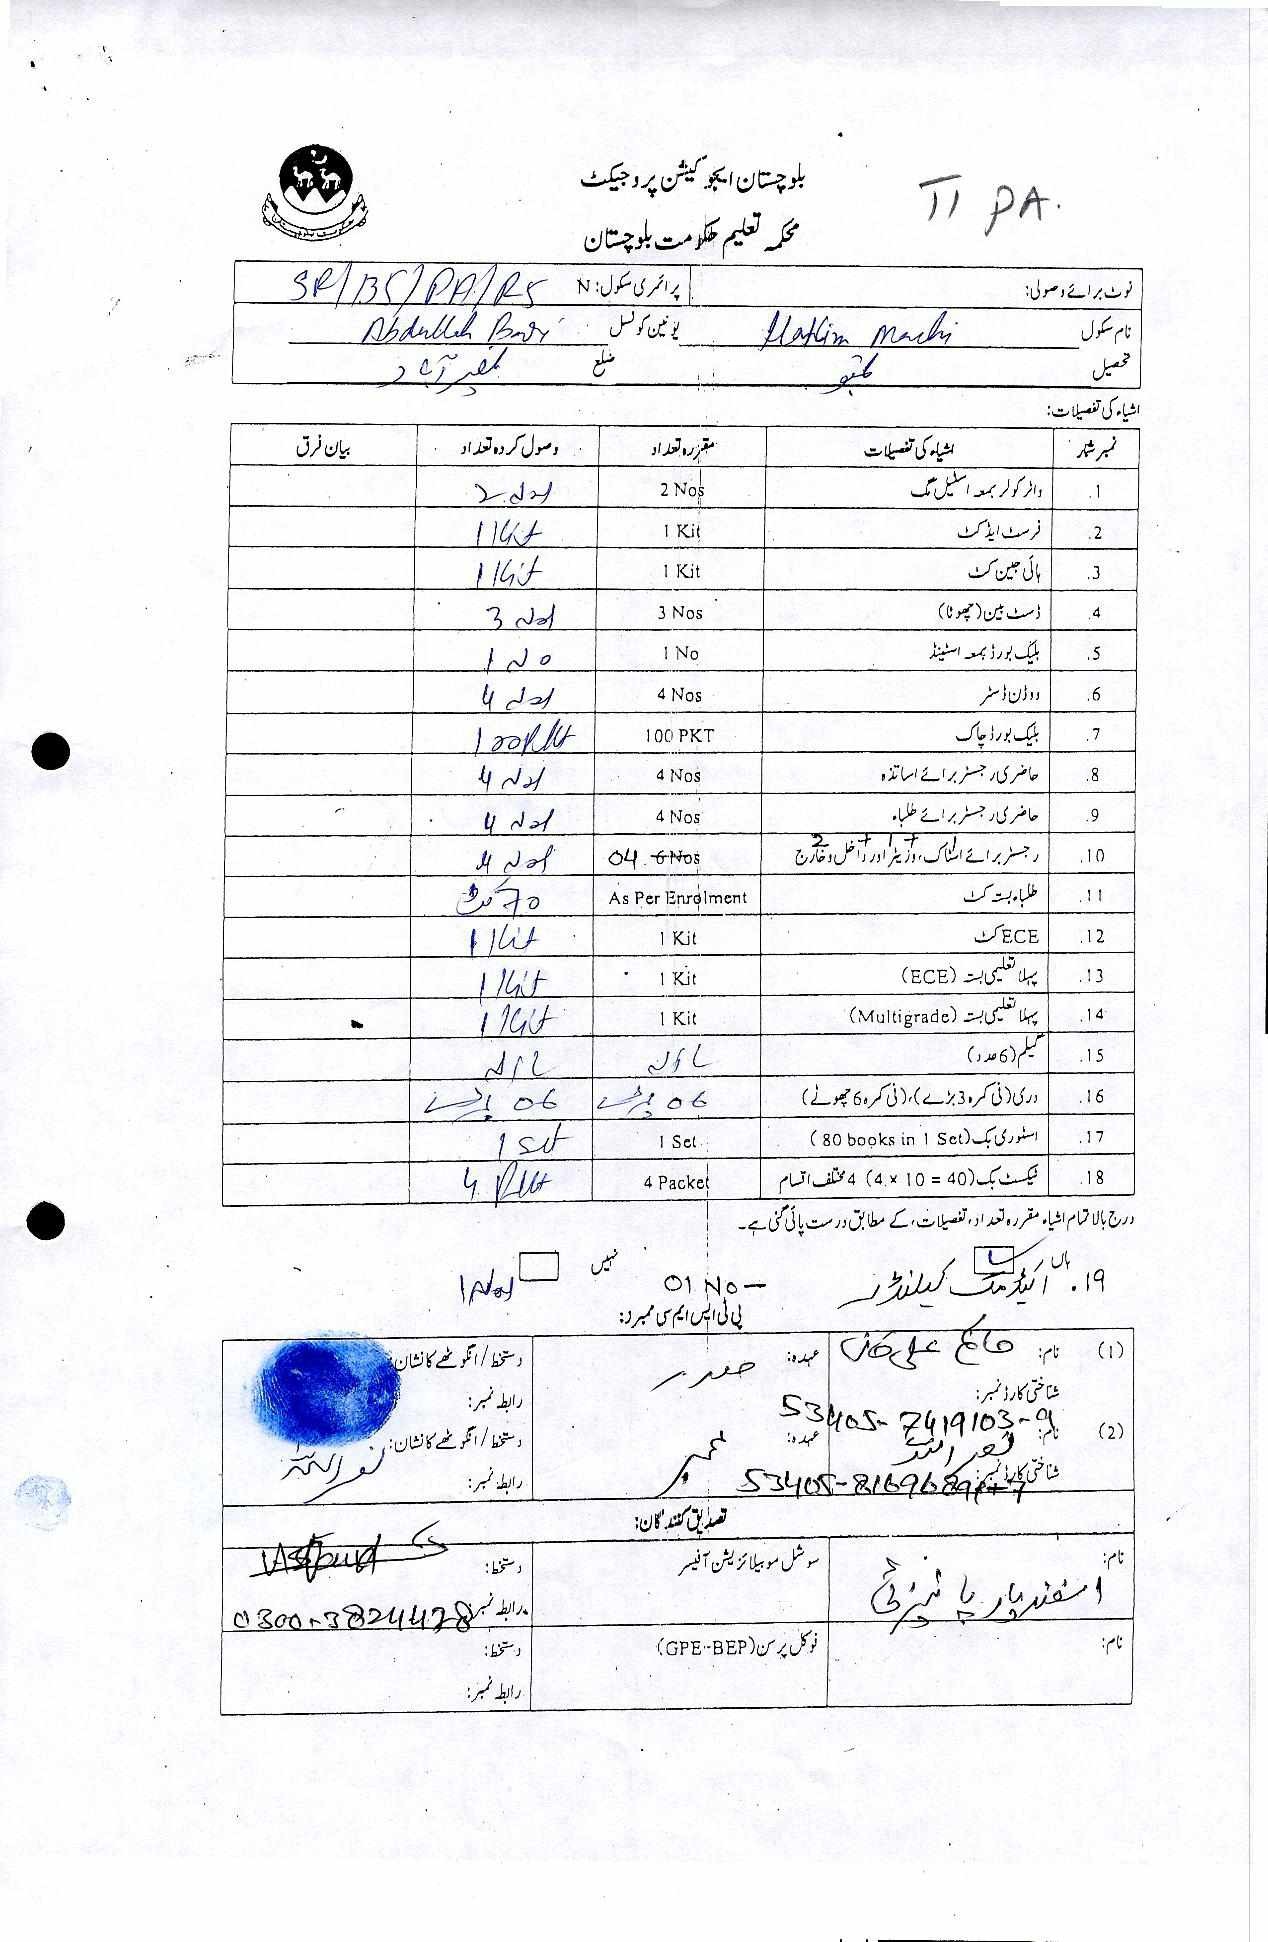 بلوچستان ایجوکیشن پروجیکٹ
II PA.
محکمہ تعلیم حکومت بلوچستان
نوٹ برائے وصولی: پرائمری سکول: N SR/BS/PA/RS
نام سکول Hakim Machi یونین کونسل Abdullah
تحصیل تمبو ضلع نصیر آباد
اشیاء کی تفصیلات:
نمبر شمار اشیاء کی تفصیلات مقررہ تعداد وصول کردہ تعداد بیان فرق
1. واٹر کولر بمعہ اسٹیل مگ 2 Nos 2 Nos
2. فرسٹ ایڈ کٹ 1 Kit 1 Kit
3. ہائی جین کٹ 1 Kit 1 Kit
4. ڈسٹ بین (چھوٹا) 3 Nos 3 Nos
5. بلیک بورڈ بمعہ اسٹینڈ 1 No 1 No
6. ووڈن ڈسٹر 4 Nos 4 Nos
7. بلیک بورڈ چاک 100 PKT 100 Pkt
8. حاضری رجسٹر برائے اساتذہ 4 Nos 4 Nos
9. حاضری رجسٹر برائے طلباء 4 Nos 4 Nos
2 + 1 + 1
10. رجسٹر برائے اسٹاک، وزیٹر اور داخل و خارج 04 6 Nos 4 Nos
11. طلباء بستہ کٹ As Per Enrolment 70 کٹ
12. ECE کٹ 1 Kit 1 Kit
13. پہلا تعلیمی بستہ (ECE) 1 Kit 1 Kit
14. پہلا تعلیمی بستہ (Multigrade) 1 Kit 1 Kit
15. گیلم (6 عدد) NIL NIL
16. دری (فی کمرہ 3 بڑے)، (فی کمرہ 6 چھوٹے) 06 بڑے 06 بڑے
17. اسٹوری بک (80 books in 1 Set) 1 Set 1 Set
18. ٹیکسٹ بک (4 x 10 = 40) 4 مختلف اقسام 4 Packet 4 Pkt
درج بالا تمام اشیاء مقررہ تعداد، تفصیلات، کے مطابق درست پائی گئی ہے۔
ہاں نہیں
۱۹. اکیڈمک کیلنڈر 01 No - 1 Nos
پی ٹی ایس ایم سی ممبرز:
(1) نام: حاکم علی خان عہدہ: صدر دستخط / انگوٹھے کا نشان:
شناختی کارڈ نمبر: 53405-7419103-9 رابطہ نمبر:
(2) نام: نور اللہ عہدہ: ممبر دستخط / انگوٹھے کا نشان: نور اللہ
شناختی کارڈ نمبر: رابطہ نمبر:
تصدیق کنندگان:
نام: اسفند یار سوشل موبیلائزیشن آفیسر دستخط:
رابطہ نمبر: 0300-3824428
نام: فوکل پرسن (GPE-BEP) دستخط:
رابطہ نمبر: